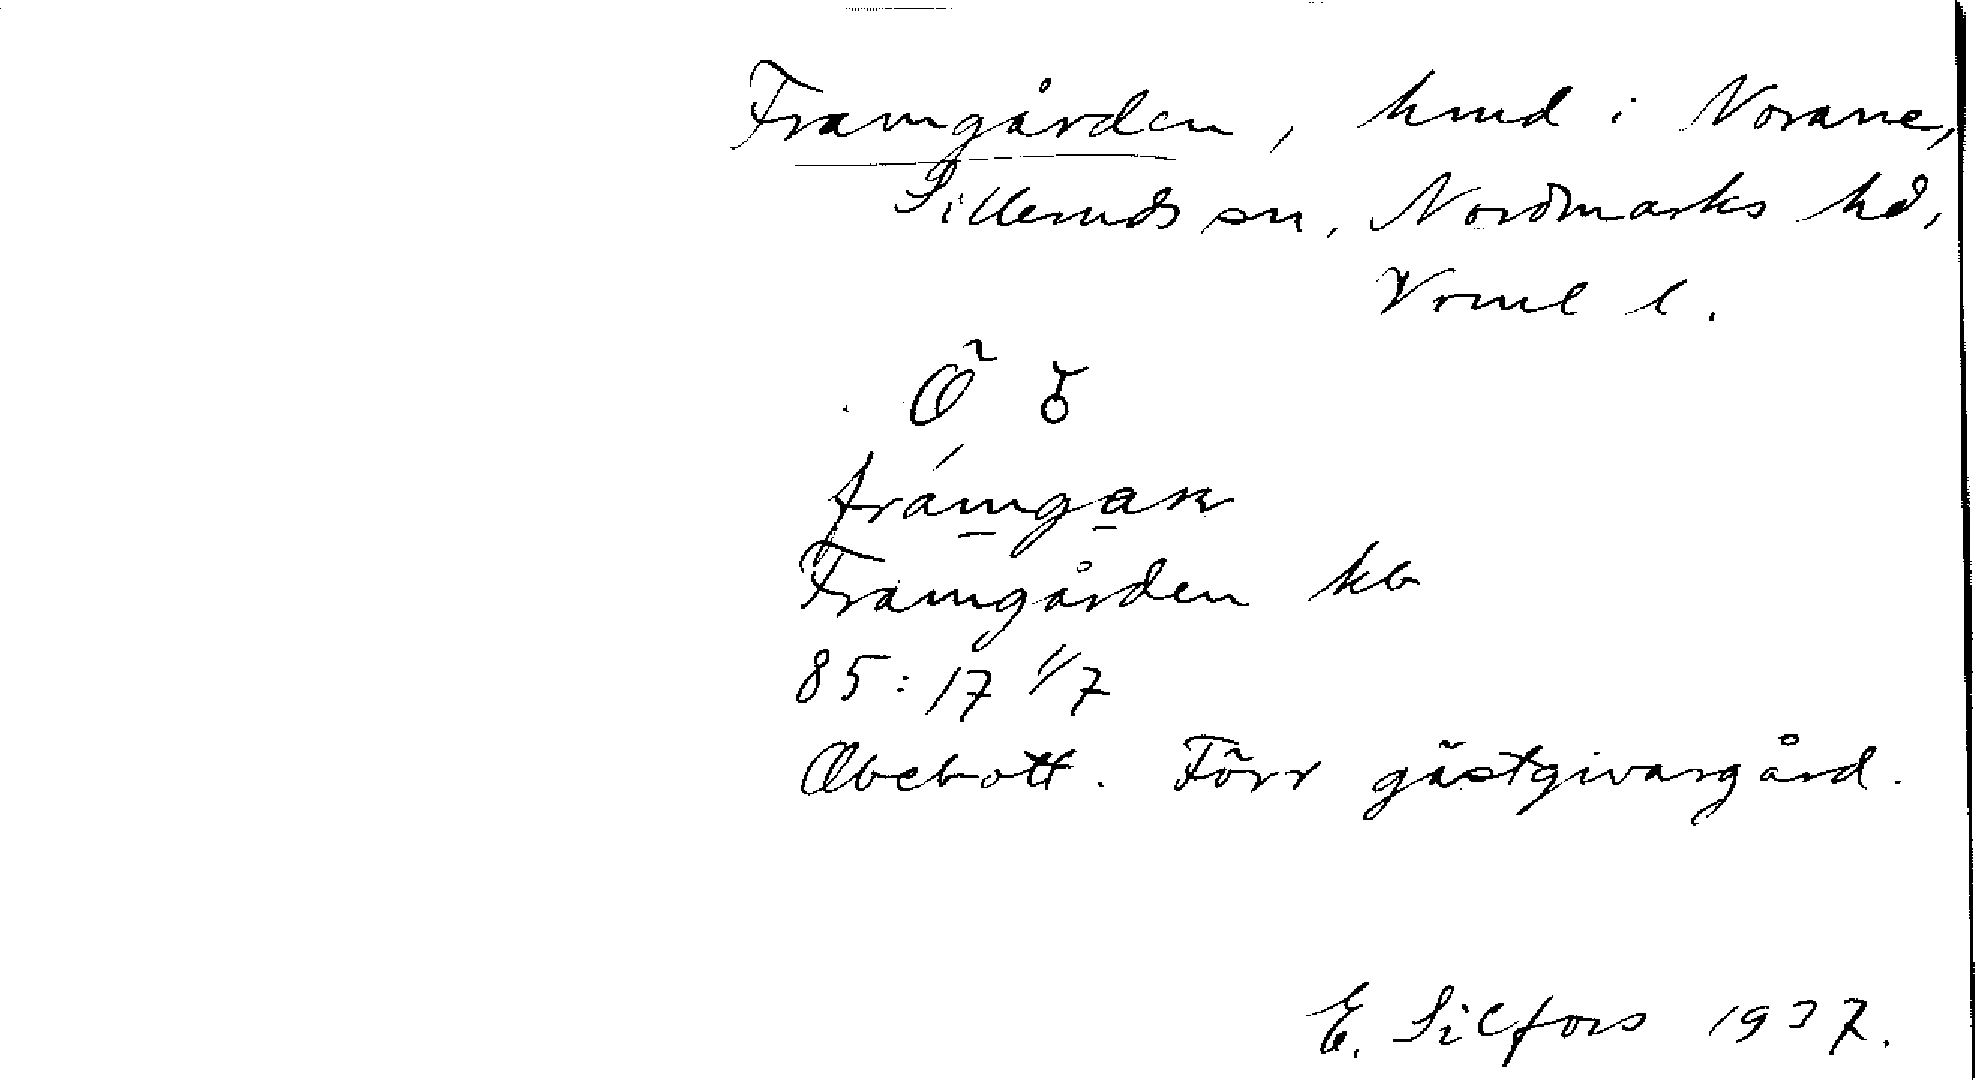 Framgården, hmd i Norane,
Silleruds sn, Nordmarks hd,
Vrml l.
Framgården kb
85:17 1/7
Obebott. Förr gästgivargård.
E. Silfors 1937.